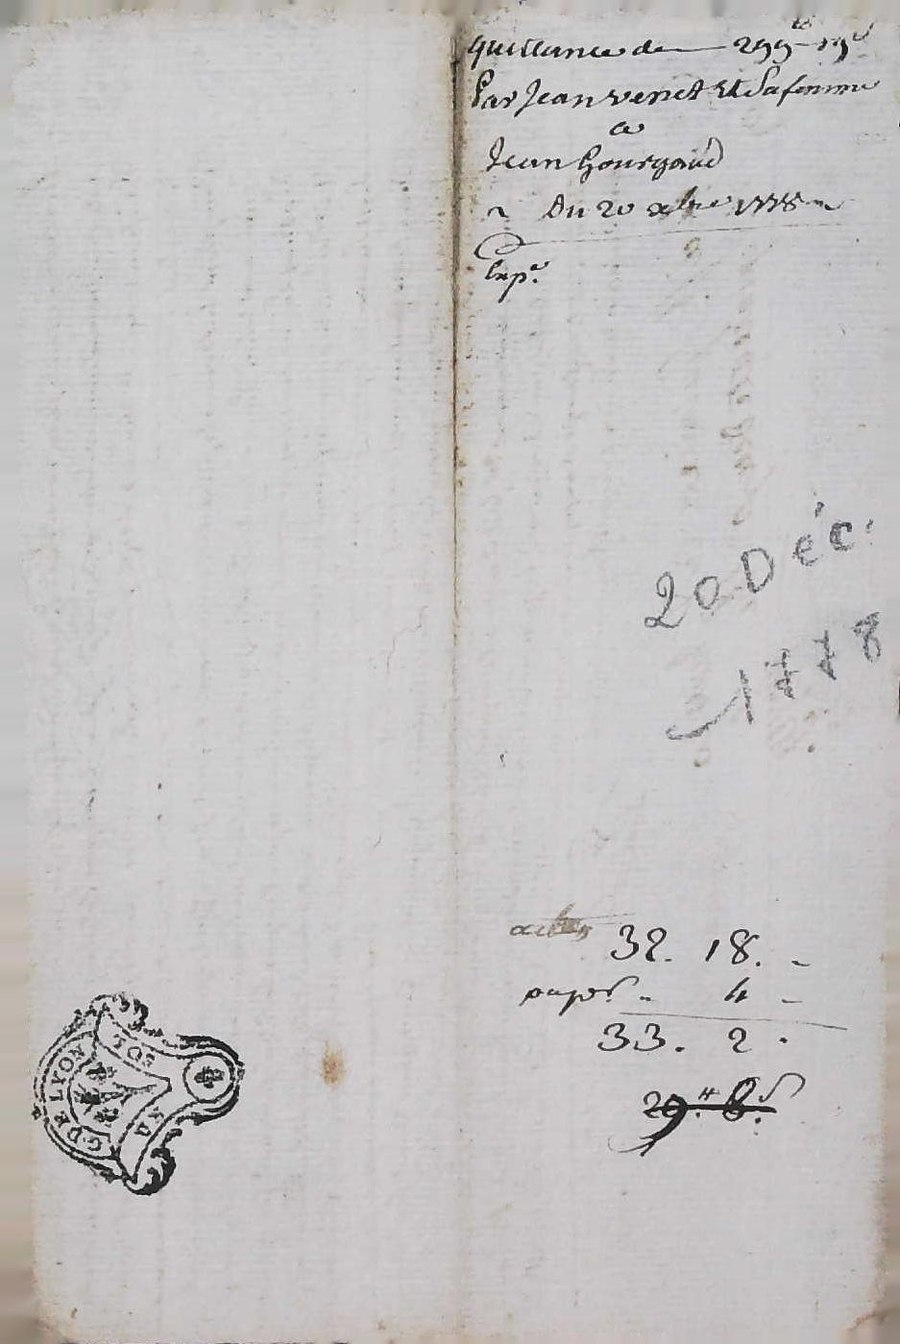 quittance de — 299 lt 19 s
Par Jean venet Et Sa femme
a
Jean Gourgaud
Du 20 xbre 1778
Exp.e
20 Déc.
1778
32. 18.
papier 4
33. 2.
29.
G DE LYON
SOL